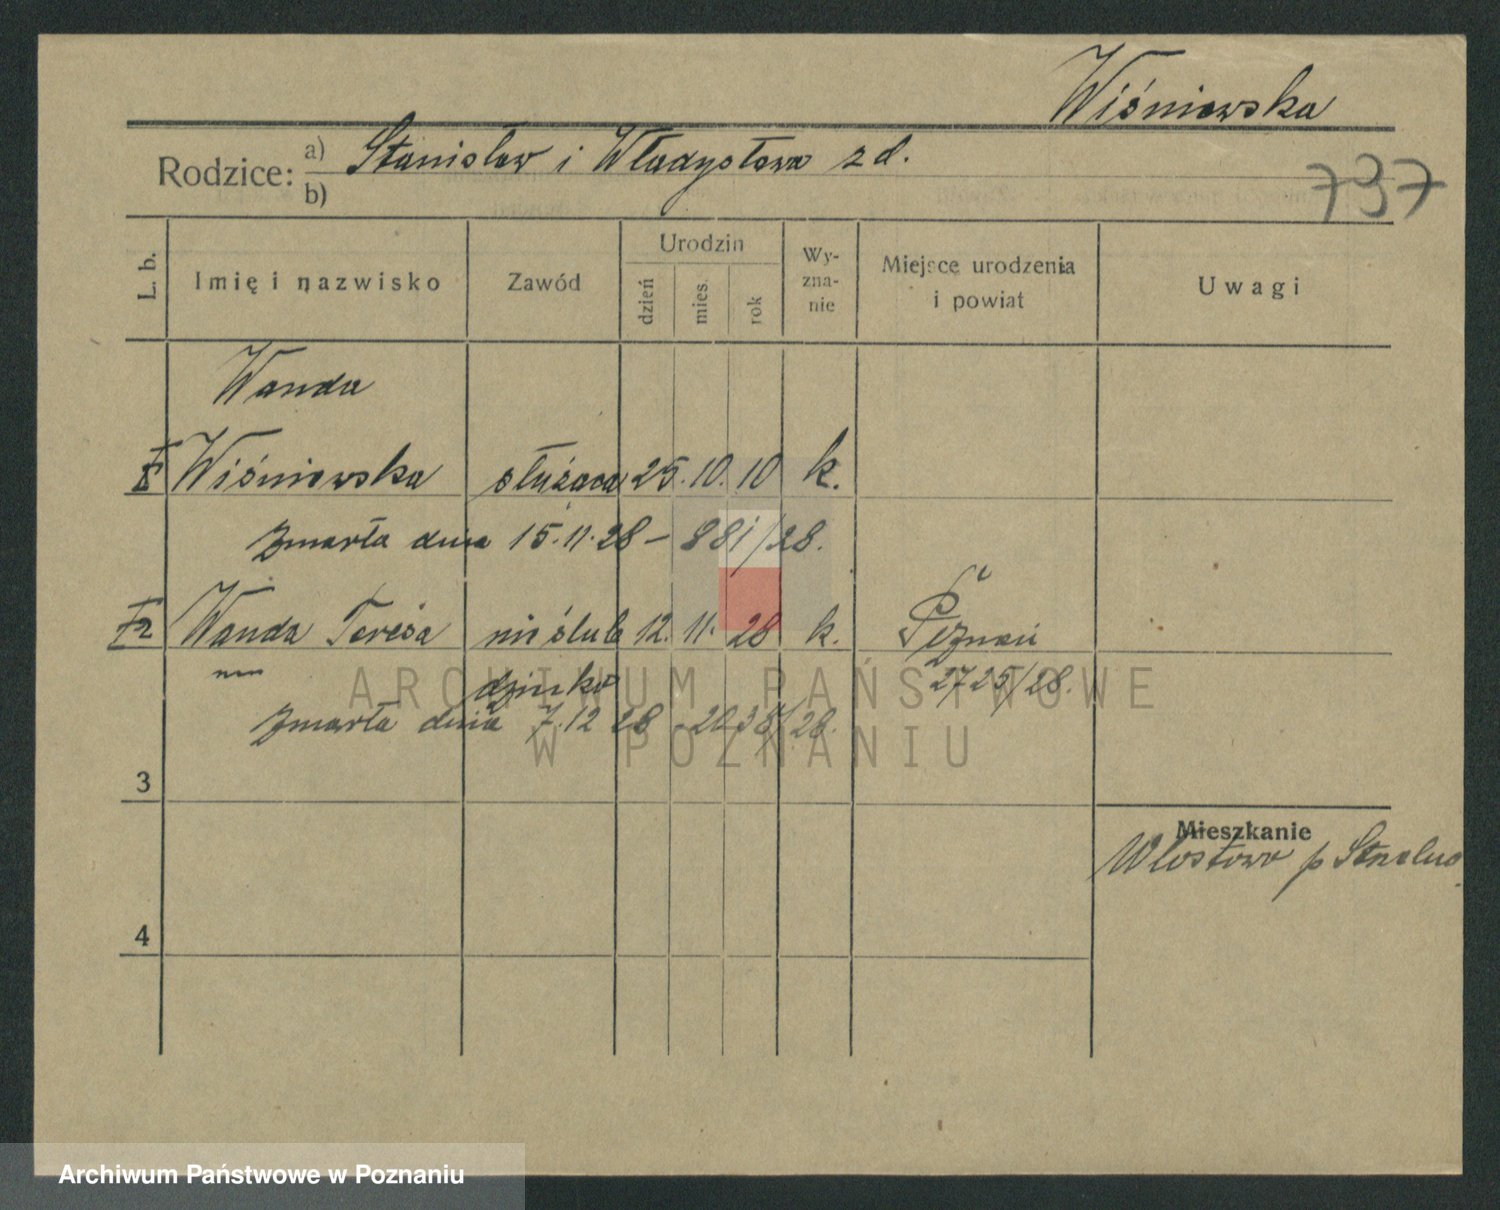 Wiśniewska
Rodzice: a) Stanisław i Władysława z d.
b)
737
L. b. Imię i nazwisko Zawód Urodzin dzień mies. rok Wy-zna-nie Miejsce urodzenia i powiat Uwagi
Wanda
Wiśniewska służąca 25. 10. 10 k.
zmarła dnia 15.11.28 – 881/28.
Wanda Teresa nieślub 12. 11. 28 k. Poznań
dziecko 2725/28.
zmarła dnia 7.12 28 - 2038/28.
3
Mieszkanie
Włostowo p Strzelno
4
ARCHIWUM PAŃSTWOWE
W POZNANIU
Archiwum Państwowe w Poznaniu